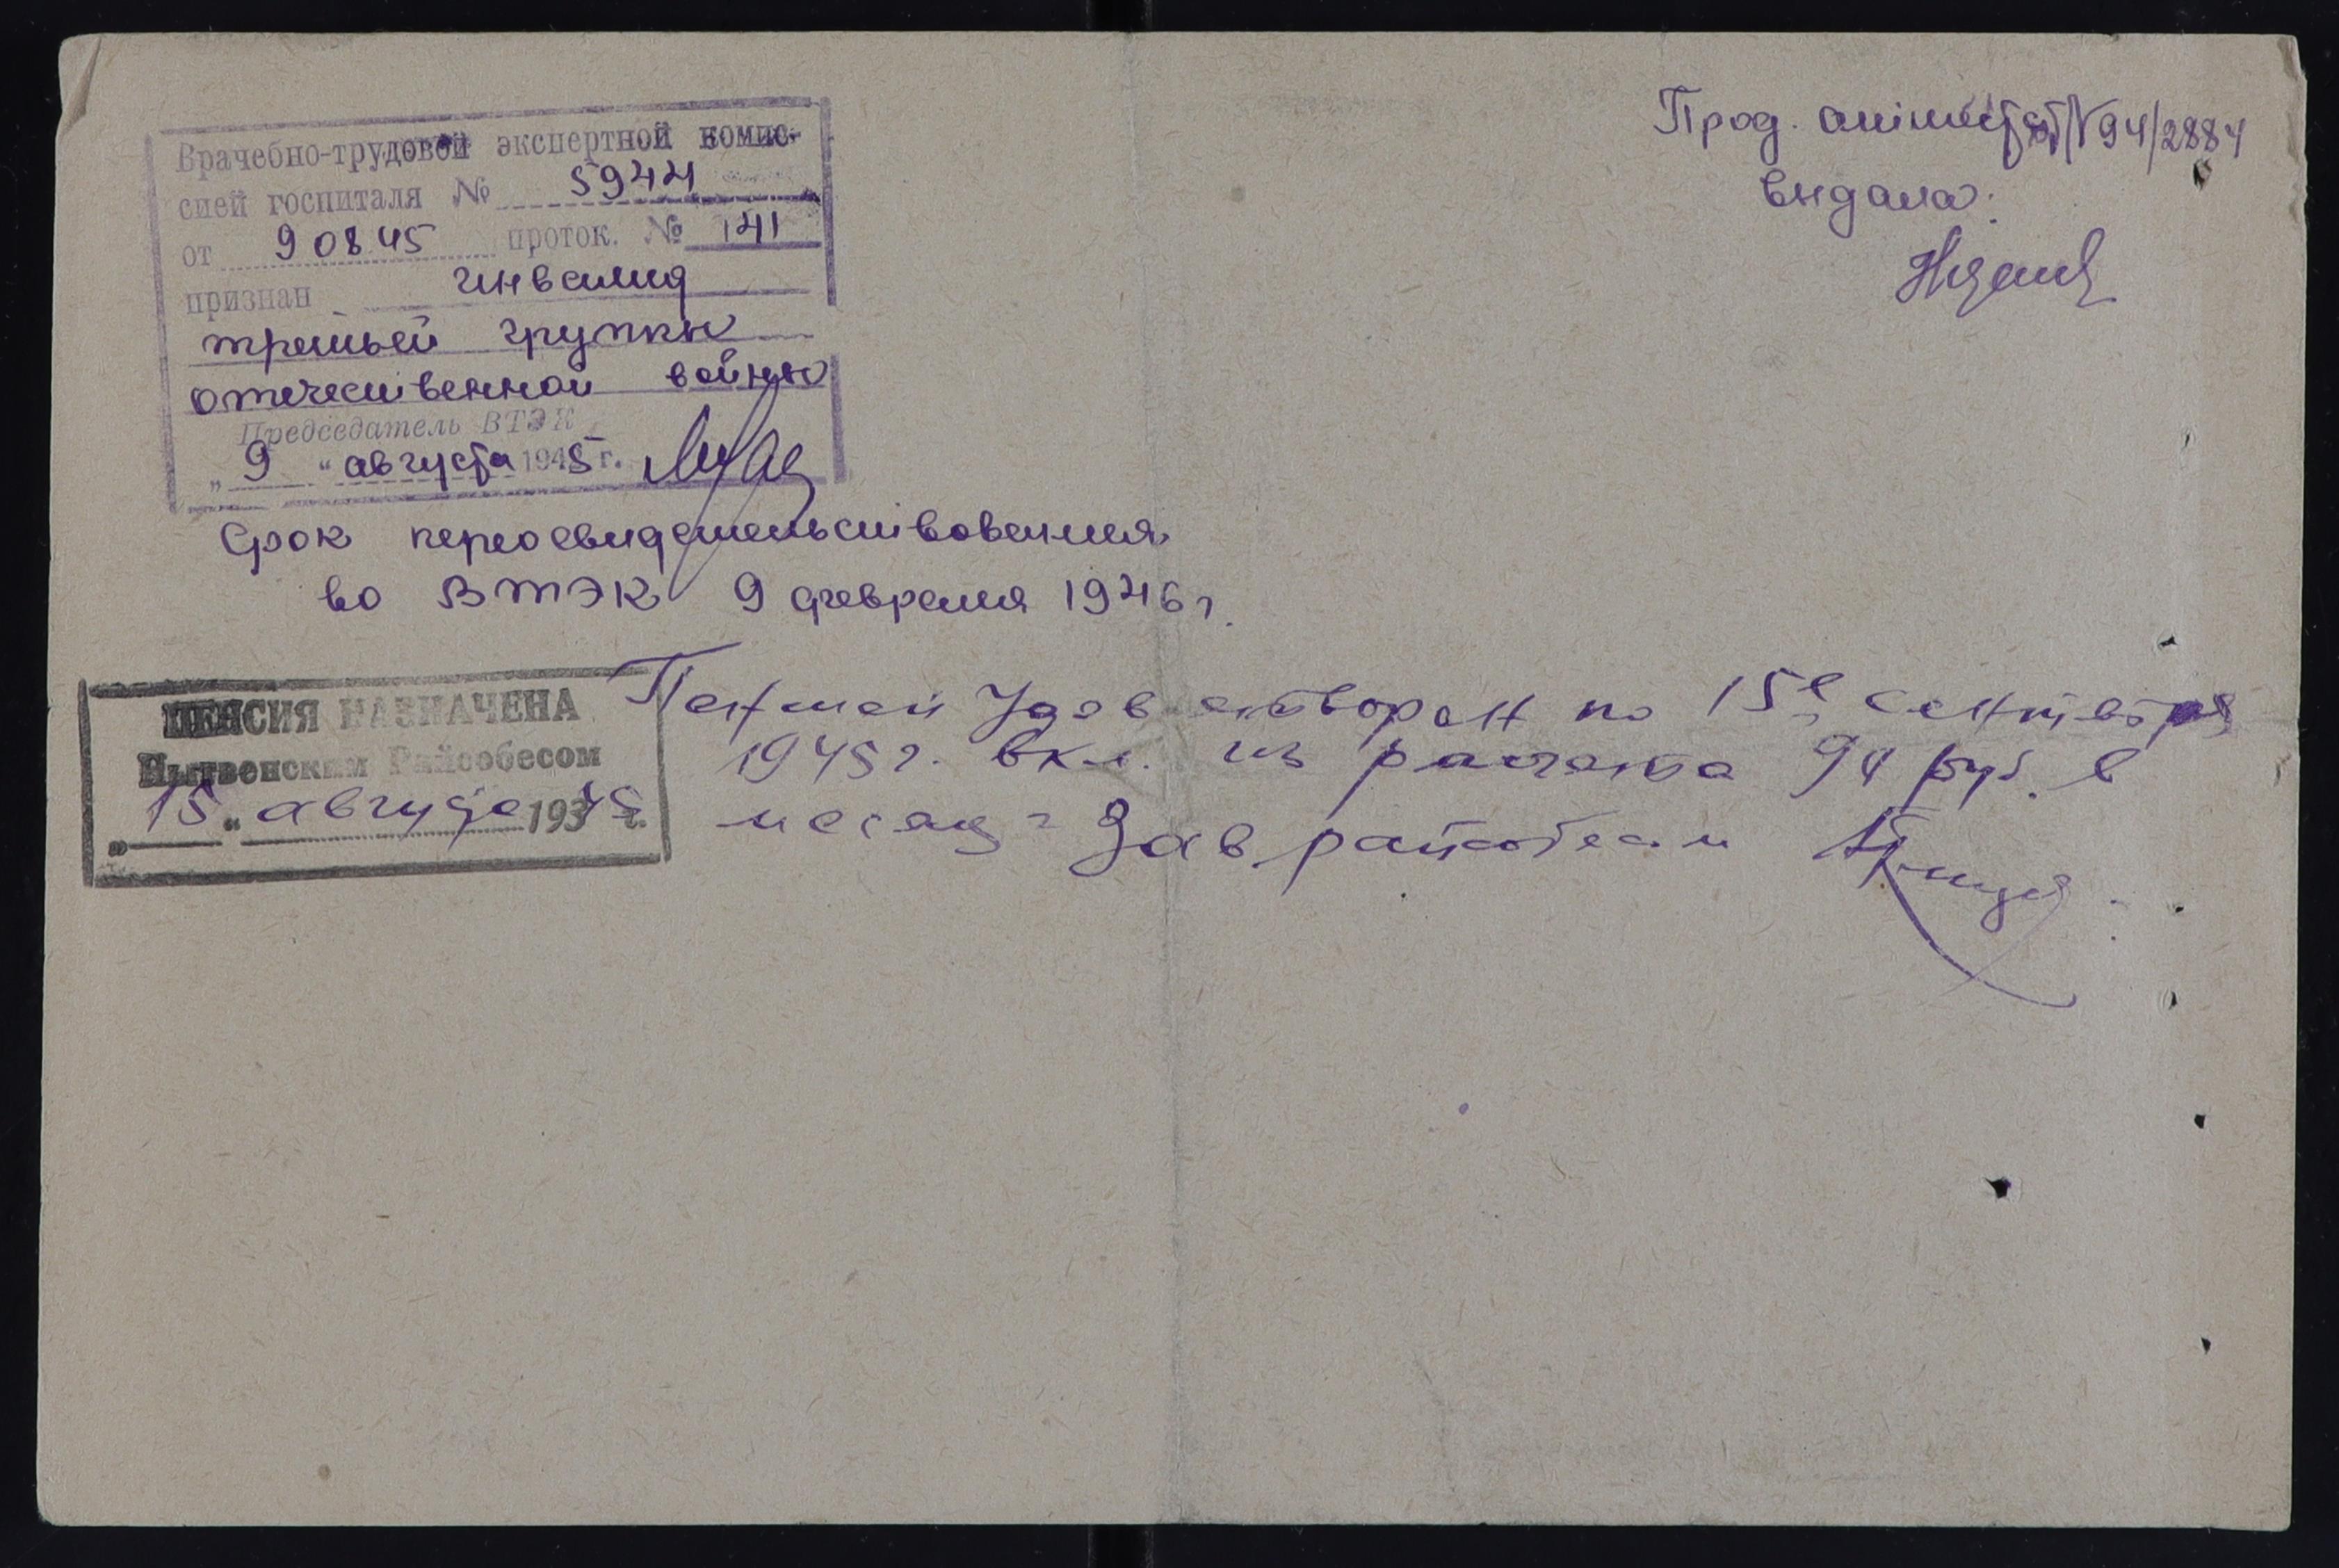 Врачебно-трудовой экспертной комис-
сией госпиталя № 5944
от 9 08 45 проток. № 141
признан инвалид
третьей группы
отечественной войны
Председатель ВТЭК
„ 9 “ августа 1945 г.
Срок переосвидетельствования
во ВТЭК 9 февраля 1946 г.
Прод. аттестат № 94/2884
выдала:
ПЕНСИЯ НАЗНАЧЕНА
Нытвенским Райсобесом
„ 15 “ августа 193 45 г.
Пенсией удовлетворен по 15е сентября
1945 г. вкл. из расчета 94 руб. в
месяц = Зав райсобесом